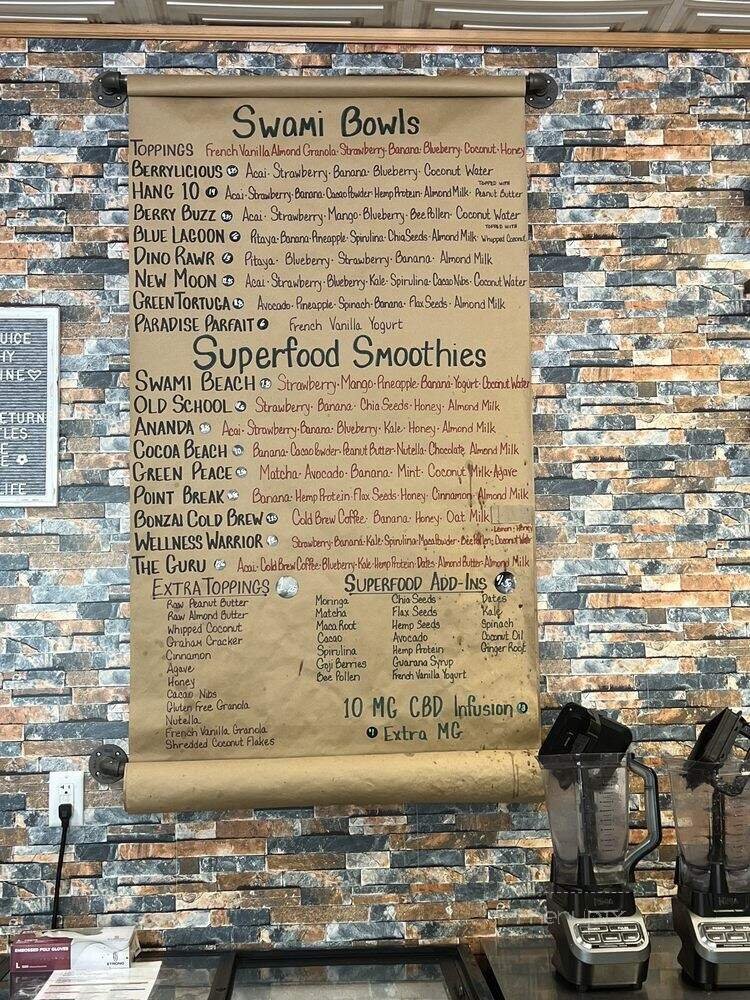 Swami Bowls
TOPPINGS French Vanilla Almond Granola · Strawberry · Banana · Blueberry · Coconut · Honey
BERRYLICIOUS Acai · Strawberry · Banana · Blueberry · Coconut Water
HANG 10 Acai · Strawberry · Banana · Cacao Powder · Hemp Protein · Almond Milk · TOPPED WITH Peanut Butter
BERRY BUZZ Acai · Strawberry · Mango · Blueberry · Bee Pollen · Coconut Water
BLUE LAGOON Pitaya · Banana · Pineapple · Spirulina · Chia Seeds · Almond Milk · TOPPED WITH Whipped Coconut
DINO RAWR Pitaya · Blueberry · Strawberry · Banana · Almond Milk
NEW MOON Acai · Strawberry · Blueberry · Kale · Spirulina · Cacao Nibs · Coconut Water
GREEN TORTUGA Avocado · Pineapple · Spinach · Banana · Flax Seeds · Almond Milk
PARADISE PARFAIT French Vanilla Yogurt
Superfood Smoothies
SWAMI BEACH Strawberry · Mango · Pineapple · Banana · Yogurt · Coconut Water
OLD SCHOOL Strawberry · Banana · Chia Seeds · Honey · Almond Milk
ANANDA Acai · Strawberry · Banana · Blueberry · Kale · Honey · Almond Milk
COCOA BEACH Banana · Cacao Powder · Peanut Butter · Nutella · Chocolate Almond Milk
GREEN PEACE Matcha · Avocado · Banana · Mint · Coconut Milk · Agave
POINT BREAK Banana · Hemp Protein · Flax Seeds · Honey · Cinnamon · Almond Milk
BONZAI COLD BREW Cold Brew Coffee · Banana · Honey · Oat Milk
WELLNESS WARRIOR Strawberry · Banana · Kale · Spirulina · Maca Powder · Bee Pollen · Coconut Water · Lemon · Honey
THE GURU Acai · Cold Brew Coffee · Blueberry · Kale · Hemp Protein · Dates · Almond Butter · Almond Milk
EXTRA TOPPINGS
Raw Peanut Butter
Raw Almond Butter
Whipped Coconut
Graham Cracker
Cinnamon
Agave
Honey
Cacao Nibs
Gluten Free Granola
Nutella
French Vanilla Granola
Shredded Coconut Flakes
SUPERFOOD ADD-INS
Moringa
Matcha
Maca Root
Cacao
Spirulina
Goji Berries
Bee Pollen
Chia Seeds
Flax Seeds
Hemp Seeds
Avocado
Hemp Protein
Guarana Syrup
French Vanilla Yogurt
Dates
Kale
Spinach
Coconut Oil
Ginger Root
10 MG CBD Infusion
Extra MG
UICE
HY
INE♡
ETURN
LES
E
LIFE
EMBOSSED POLY GLOVES
L
STRONG